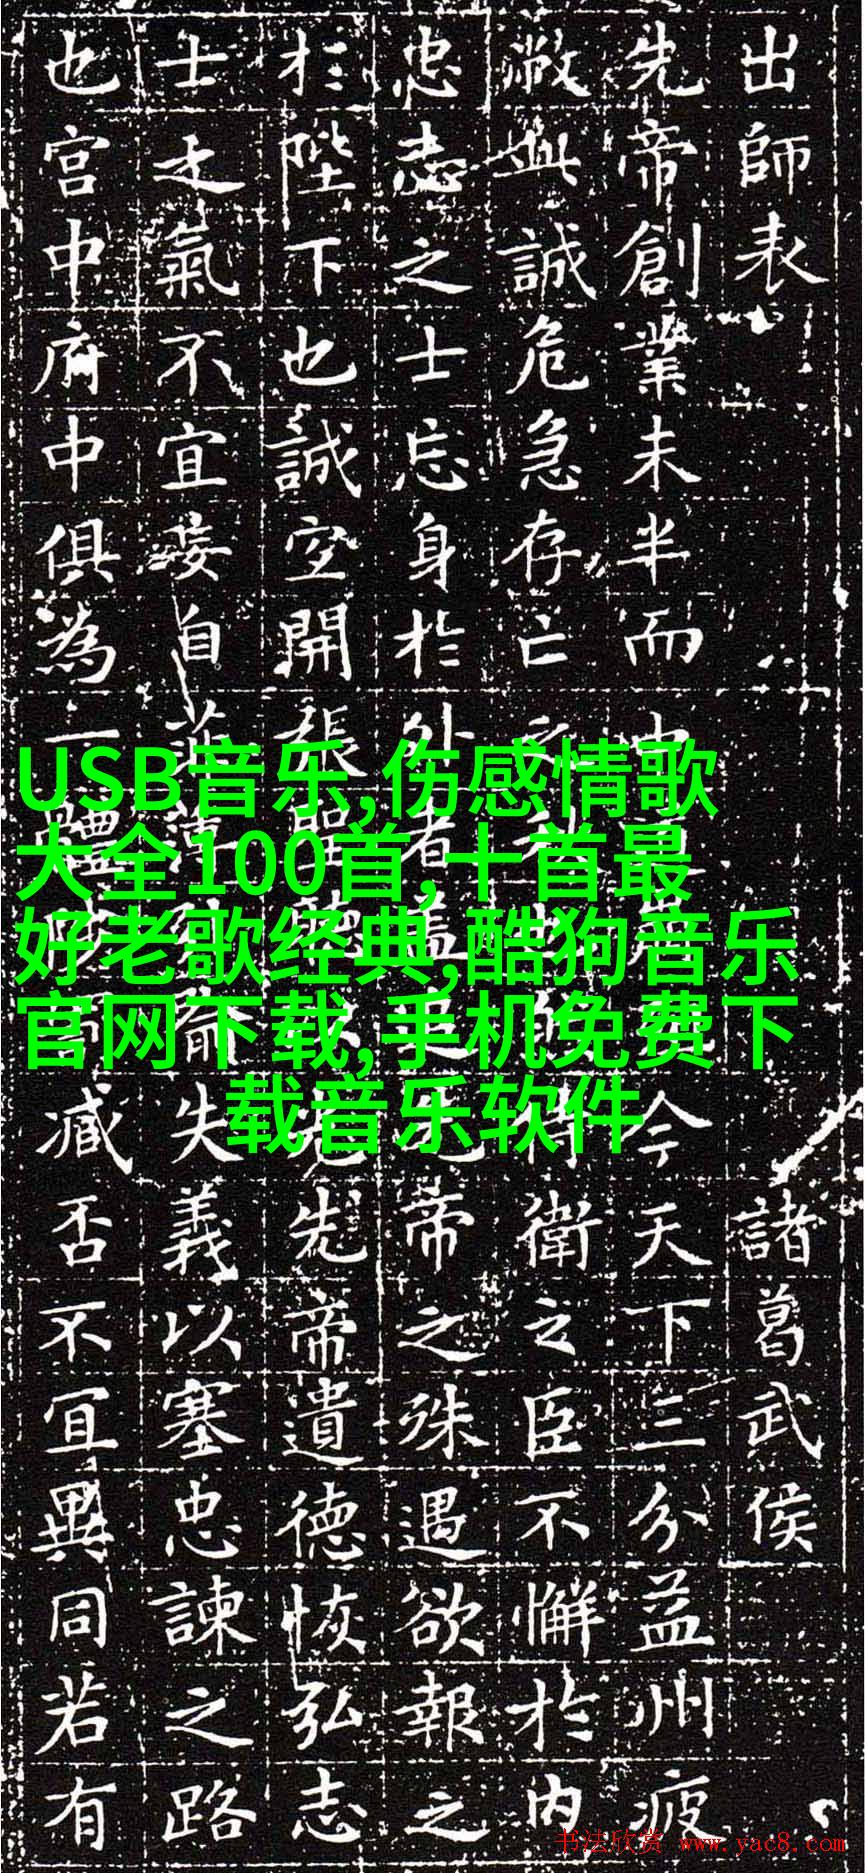 出師表 諸葛武侯
先帝創業未半而中今天下三分益州疲
敝此誠危急存亡之侍衛之臣不懈於内
忠志之士忘身於外者蓋追先帝之殊遇欲報之
於陛下也誠宜開張聖光先帝遺德恢弘志
士之氣不宜妄自菲薄喻失義以塞忠諫之路
也宮中府中俱為一體臧否不宜異同若有
USB音乐,伤感情歌
大全100首,十首最
好老歌经典,酷狗音乐
官网下载,手机免费下
载音乐软件
书法欣赏 www.yac8.com